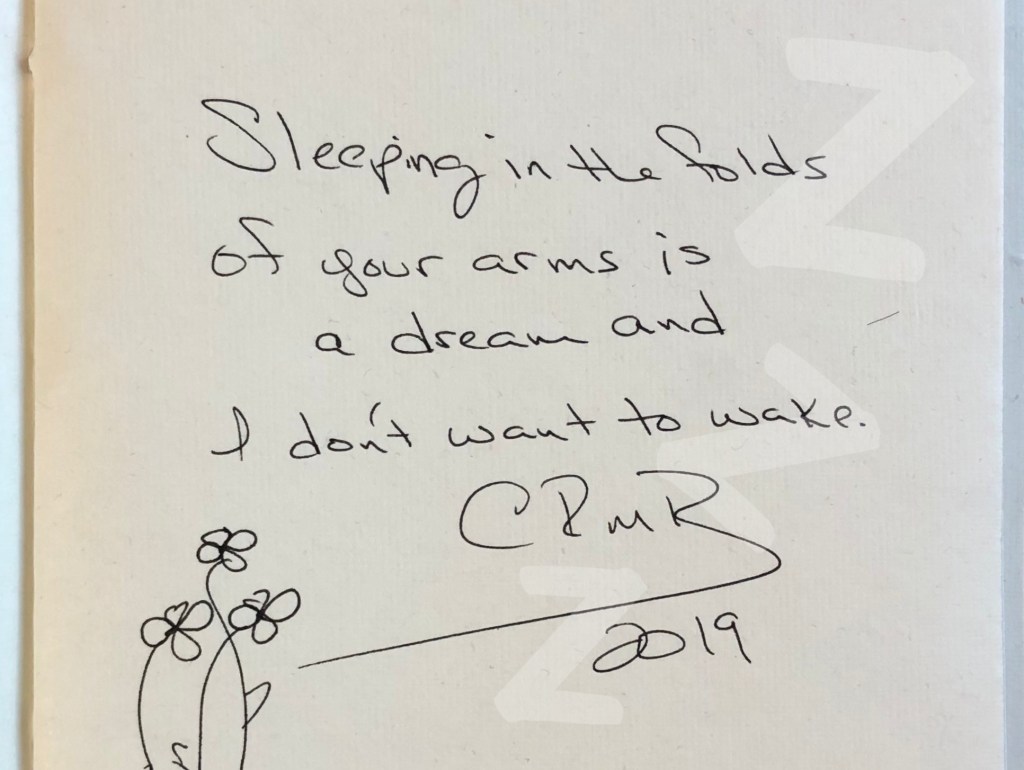 Sleeping in the folds
of your arms is
a dream and
I don't want to wake.
CRMR
2019
Z
Z
Z